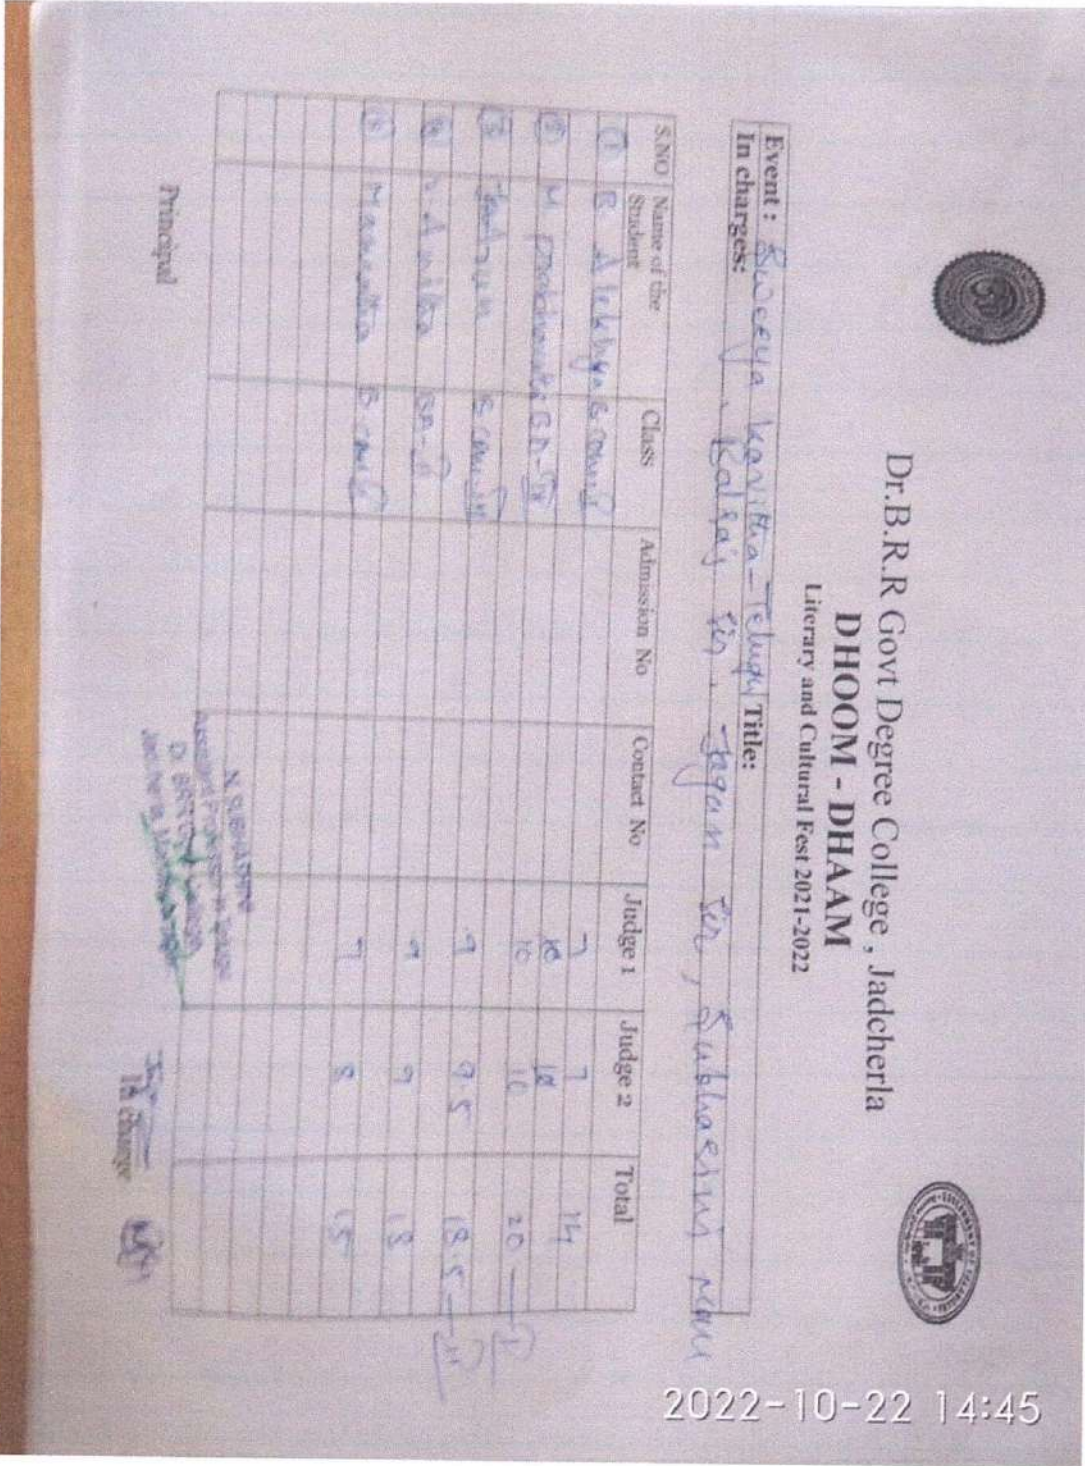 Dr.B.R.R Govt Degree College , Jadcherla
DHOOM - DHAAM
Literary and Cultural Fest 2021-2022
Event : Sweeya kavitha-Telugu Title:
In charges: Balraj Sir, Jagan Sir, Subhashini Mam
S.NO Name of the Student Class Admission No Contact No Judge 1 Judge 2 Total
1 B Alekhya B com 7 7 14
2 M BA 10 10 20 I
3 B com 9 9.5 18.5 II
4 Anitha BA 9 9 18
5 Mamatha B com 7 8 15
N. SUBHASHINI
Assistant Professor in Telugu
Principal
In charge
2022-10-22 14:45